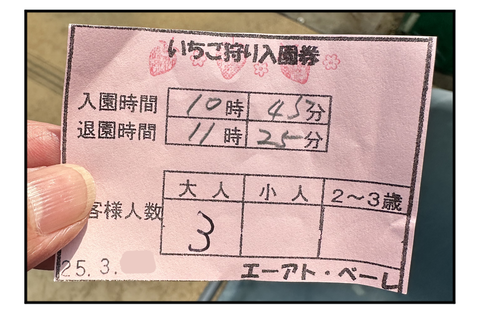 いちご狩り入園券
入園時間 10時 45分
退園時間 11時 25分
大人 小人 2〜3歳
客様人数 3
25.3.
エーアト・ベーレ